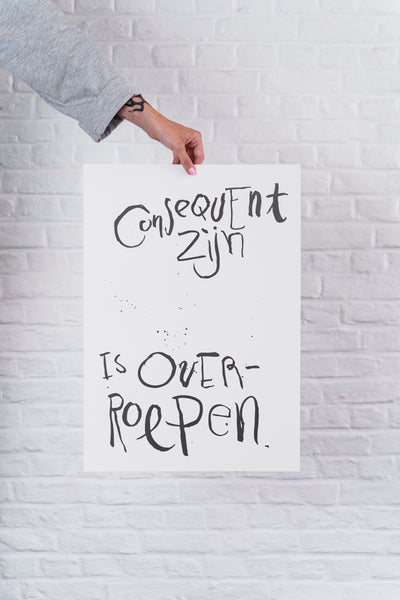 ConsequEnt
zijn
Is OVER-
Roepen.